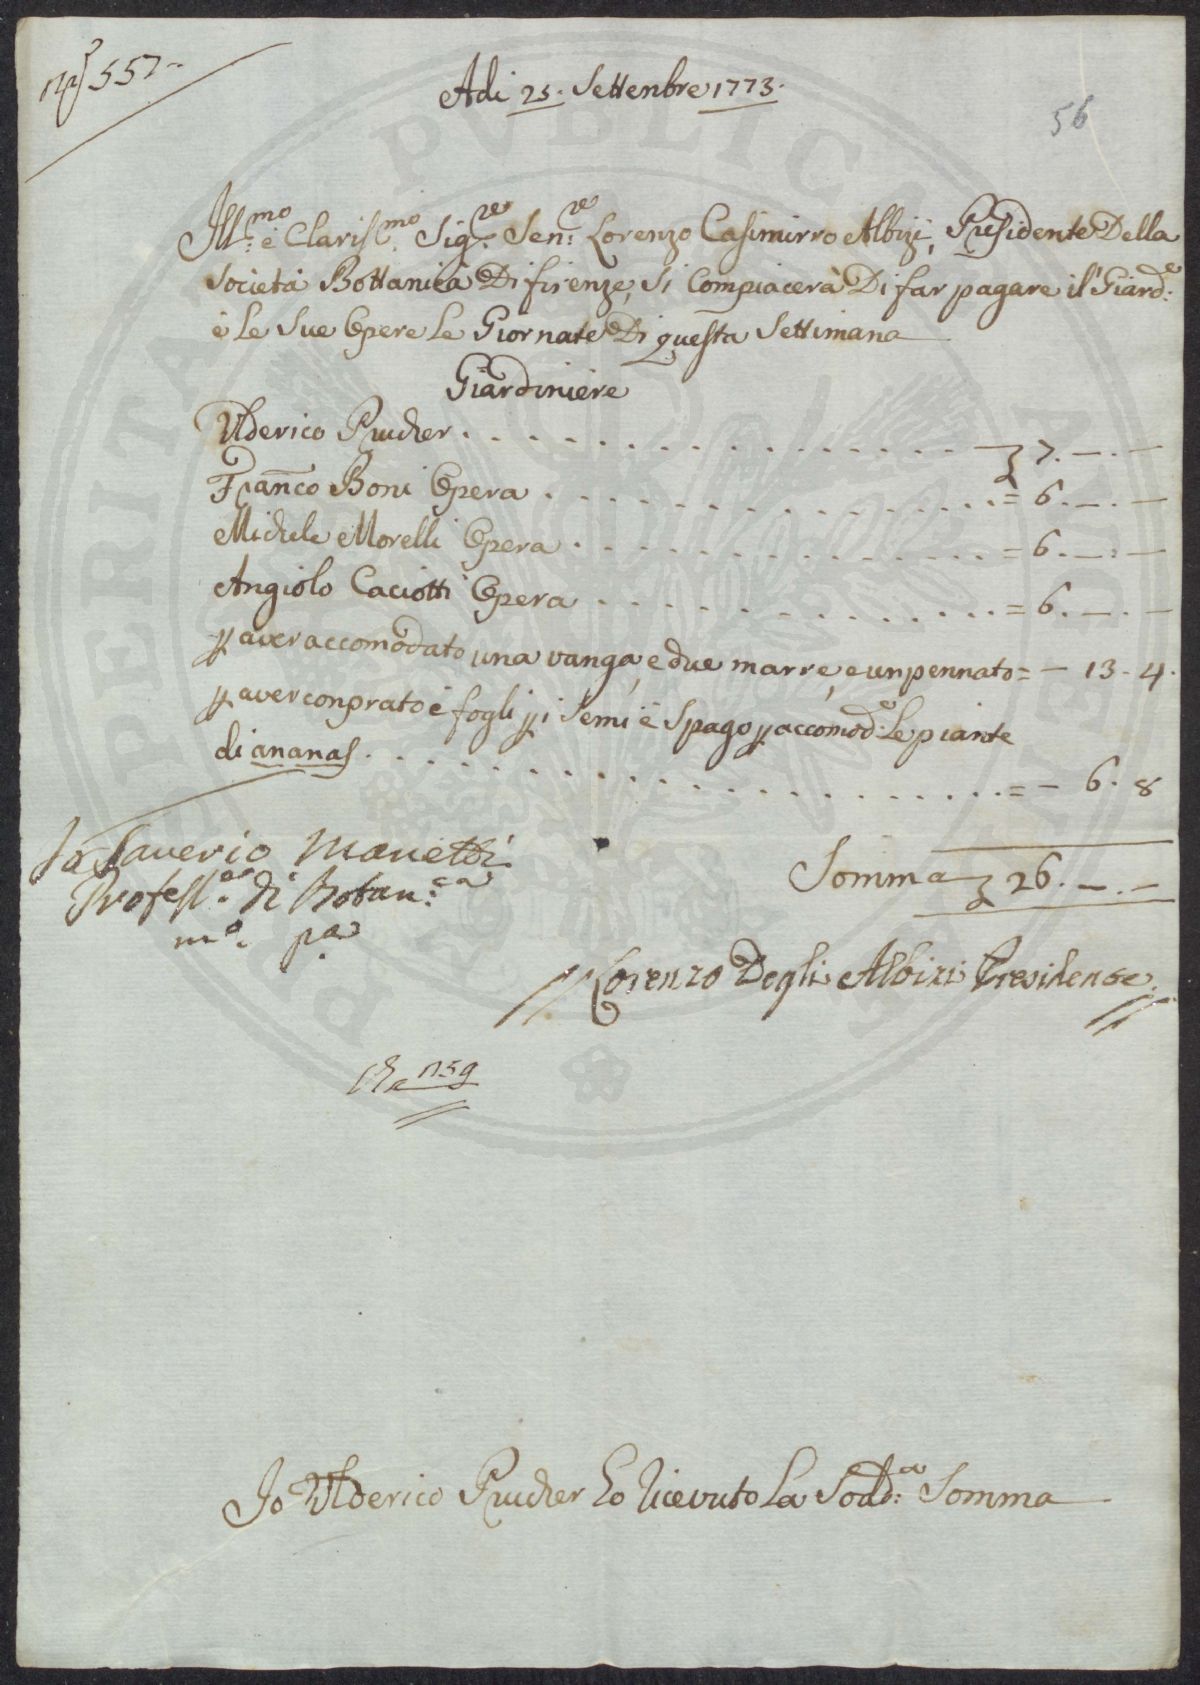 N° 557
Adi 25. Settenbre 1773.
56
Ill:mo è Claris:mo Sig:re Sen:re Lorenzo Casimirro Albizi, Presidente Della
Società Bottanica Di firenze, Si Compiacerà Di far pagare il Giard:e
è le Sue Opere le Giornate Di questa Settimana
Giardiniere
Ulderico Prucher . . . . . . . . . . . . . . . . . ʒ 7. — . —
Franco Boni Opera . . . . . . . . . . . . . . . = 6. — . —
Michele Morelli Opera . . . . . . . . . . . . . = 6. — . —
Angiolo Caciotti Opera . . . . . . . . . . . . . = 6. — . —
p aver accomodato una vanga, e due marre, e un pennato = — 13 - 4.
p aver conprato è fogli p i Semi è Spago p accomod:e le piante
di ananas . . . . . . . . . . . . . . . . . . . . = — 6. 8
Somma ʒ 26. — . —
Io Saverio Manetti
Profess:re di Botan:ca
m:o p:a
Lorenzo Degli Albizi Presidente
159
Io Ulderico Prucher ho ricevuto la Sodd:a Somma
PERITA
PVBLIC